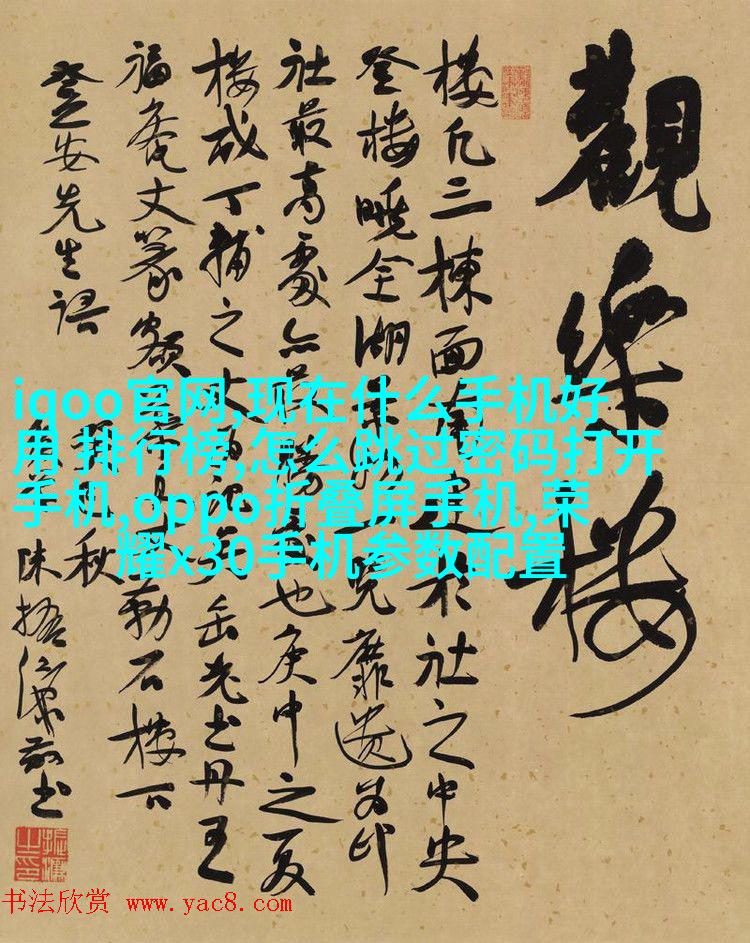 觀樂樓
樓凡三棟面於社之中央
登樓曉全湖靡遺為印
社最高處亦也庚申之夏
樓成丁輔之書丹王
福庵丈篆額勒石樓下
登安先生語
秋
陳振濂書
iqoo官网,现在什么手机好
用 排行榜,怎么跳过密码打开
手机,oppo折叠屏手机,荣
耀x30手机参数配置
书法欣赏 www.yac8.com